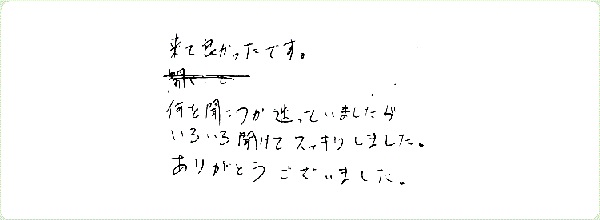 来て良かったです。
何を聞こうか迷っていましたが
いろいろ聞けてスッキリしました。
ありがとうございました。